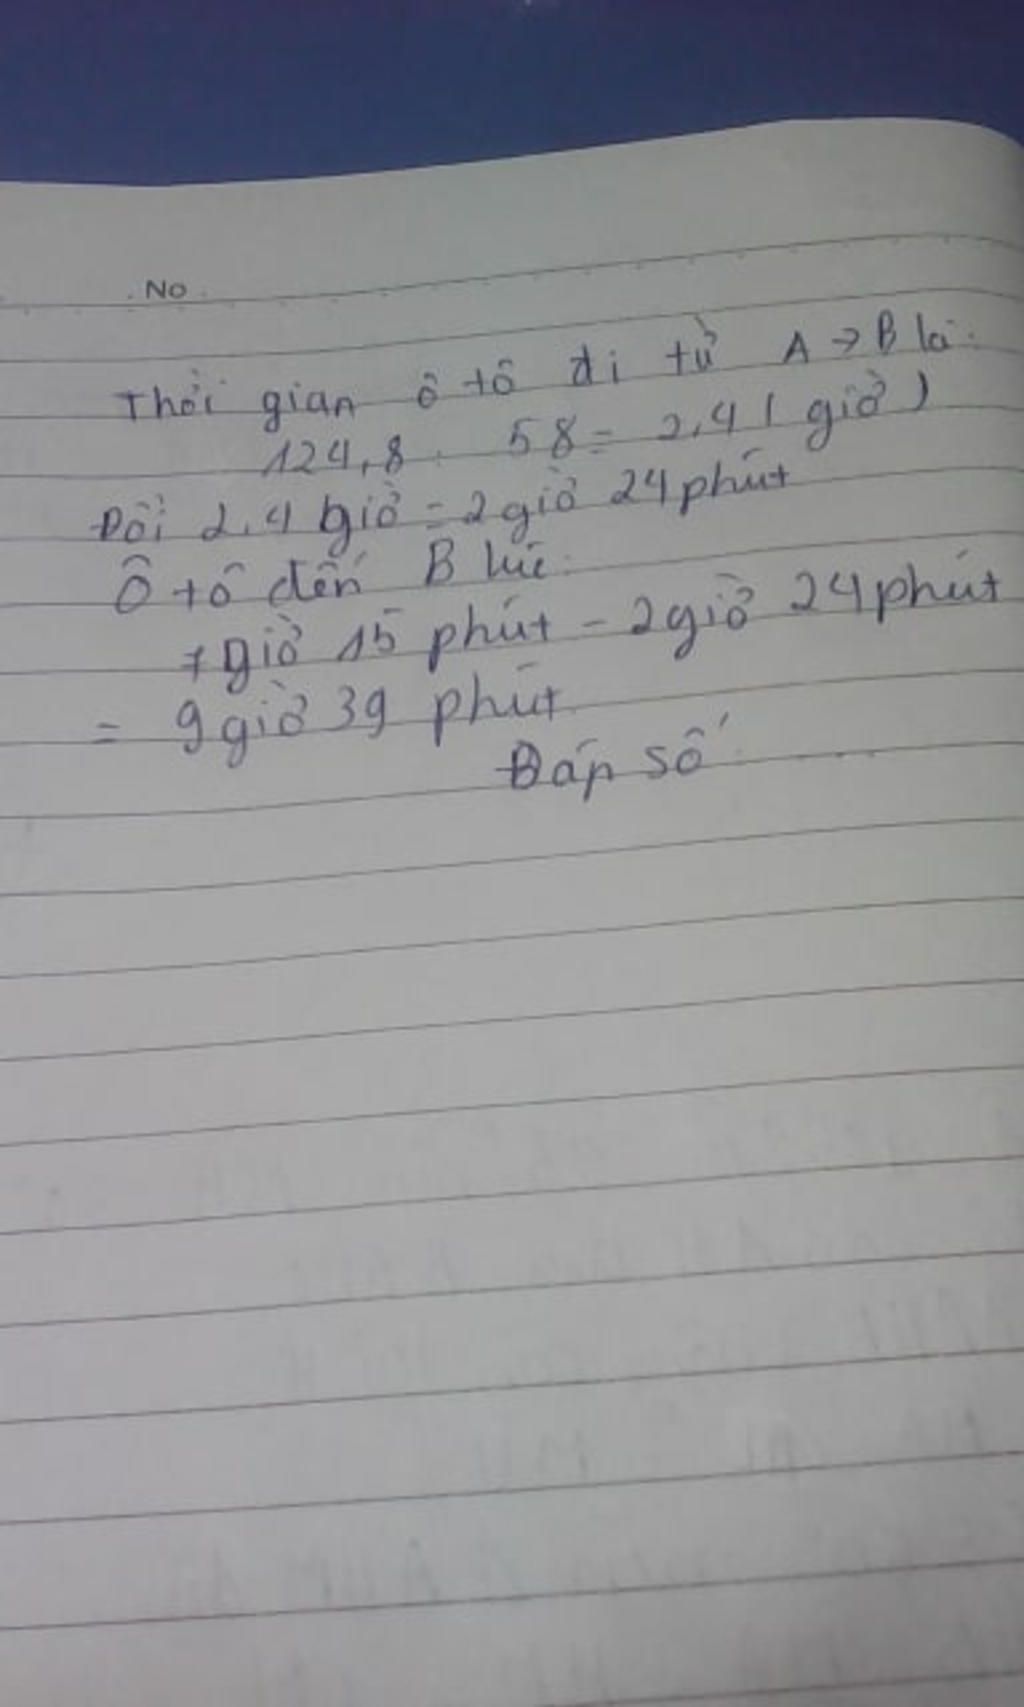 No
Thời gian ô tô đi từ A → B là:
124,8 : 58 = 2,4 ( giờ )
Đổi 2,4 giờ = 2 giờ 24 phút
Ô tô đến B lúc:
7 giờ 15 phút - 2 giờ 24 phút
= 9 giờ 39 phút
Đáp số: